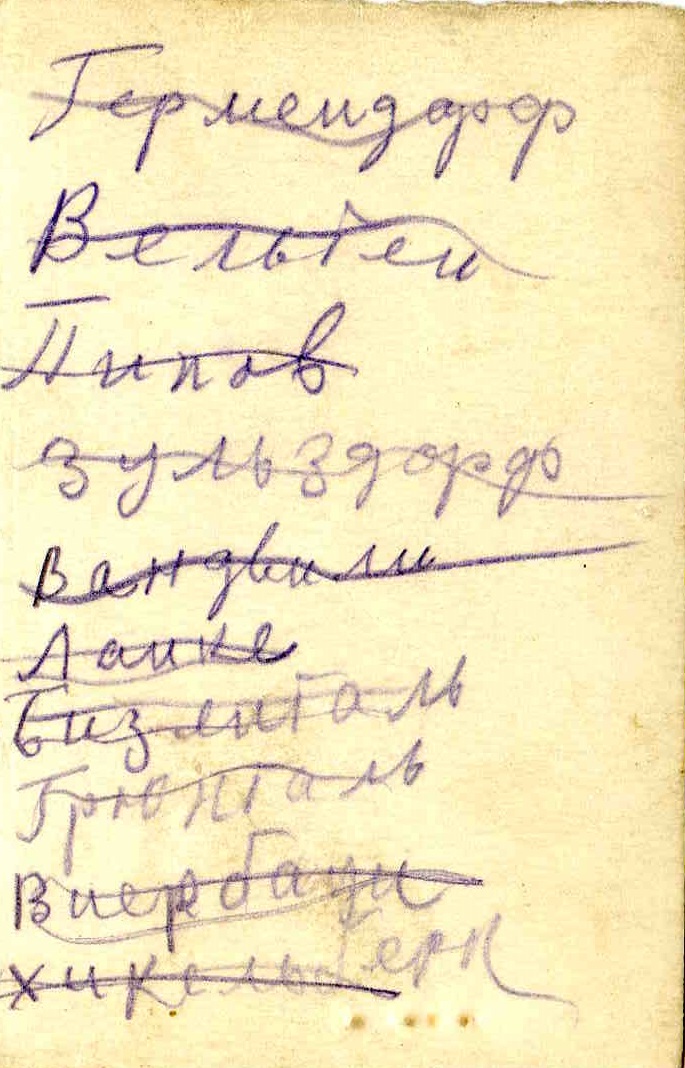 Гермендорф
Вельтен
Пипов
Зульздорф
Вандвили
Ланке
Бизенталь
Грюнталь
Виербаум
Хикельберк